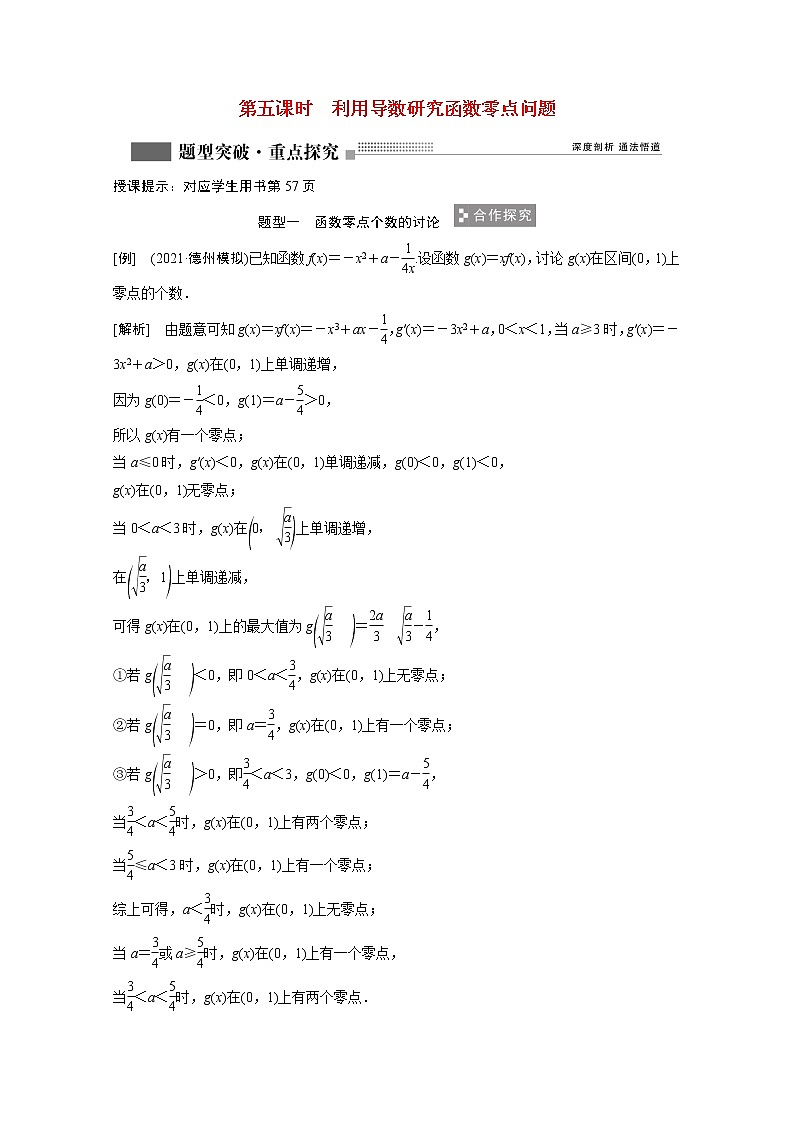 第五课时　利用导数研究函数零点问题
题型突破·重点探究
深度剖析 通法悟道
授课提示：对应学生用书第 57 页
题型一　函数零点个数的讨论
合作探究
[例]　(2021·德州模拟)已知函数 f(x)＝－x²＋a－1/4x.设函数 g(x)＝xf(x)，讨论 g(x)在区间(0，1)上
零点的个数．
[解析]　由题意可知 g(x)＝xf(x)＝－x³＋ax－1/4，g′(x)＝－3x²＋a，0＜x＜1，当 a≥3 时，g′(x)＝－
3x²＋a＞0，g(x)在(0，1)上单调递增，
因为 g(0)＝－1/4＜0，g(1)＝a－5/4＞0，
所以 g(x)有一个零点；
当 a≤0 时，g′(x)＜0，g(x)在(0，1)单调递减，g(0)＜0，g(1)＜0，
g(x)在(0，1)无零点；
当 0＜a＜3 时，g(x)在(0，√(a/3))上单调递增，
在(√(a/3)，1)上单调递减，
可得 g(x)在(0，1)上的最大值为 g(√(a/3))＝2a/3 √(a/3)－1/4，
①若 g(√(a/3))＜0，即 0＜a＜3/4，g(x)在(0，1)上无零点；
②若 g(√(a/3))＝0，即 a＝3/4，g(x)在(0，1)上有一个零点；
③若 g(√(a/3))＞0，即3/4＜a＜3，g(0)＜0，g(1)＝a－5/4，
当3/4＜a＜5/4时，g(x)在(0，1)上有两个零点；
当5/4≤a＜3 时，g(x)在(0，1)上有一个零点；
综上可得，a＜3/4时，g(x)在(0，1)上无零点；
当 a＝3/4或 a≥5/4时，g(x)在(0，1)上有一个零点，
当3/4＜a＜5/4时，g(x)在(0，1)上有两个零点．